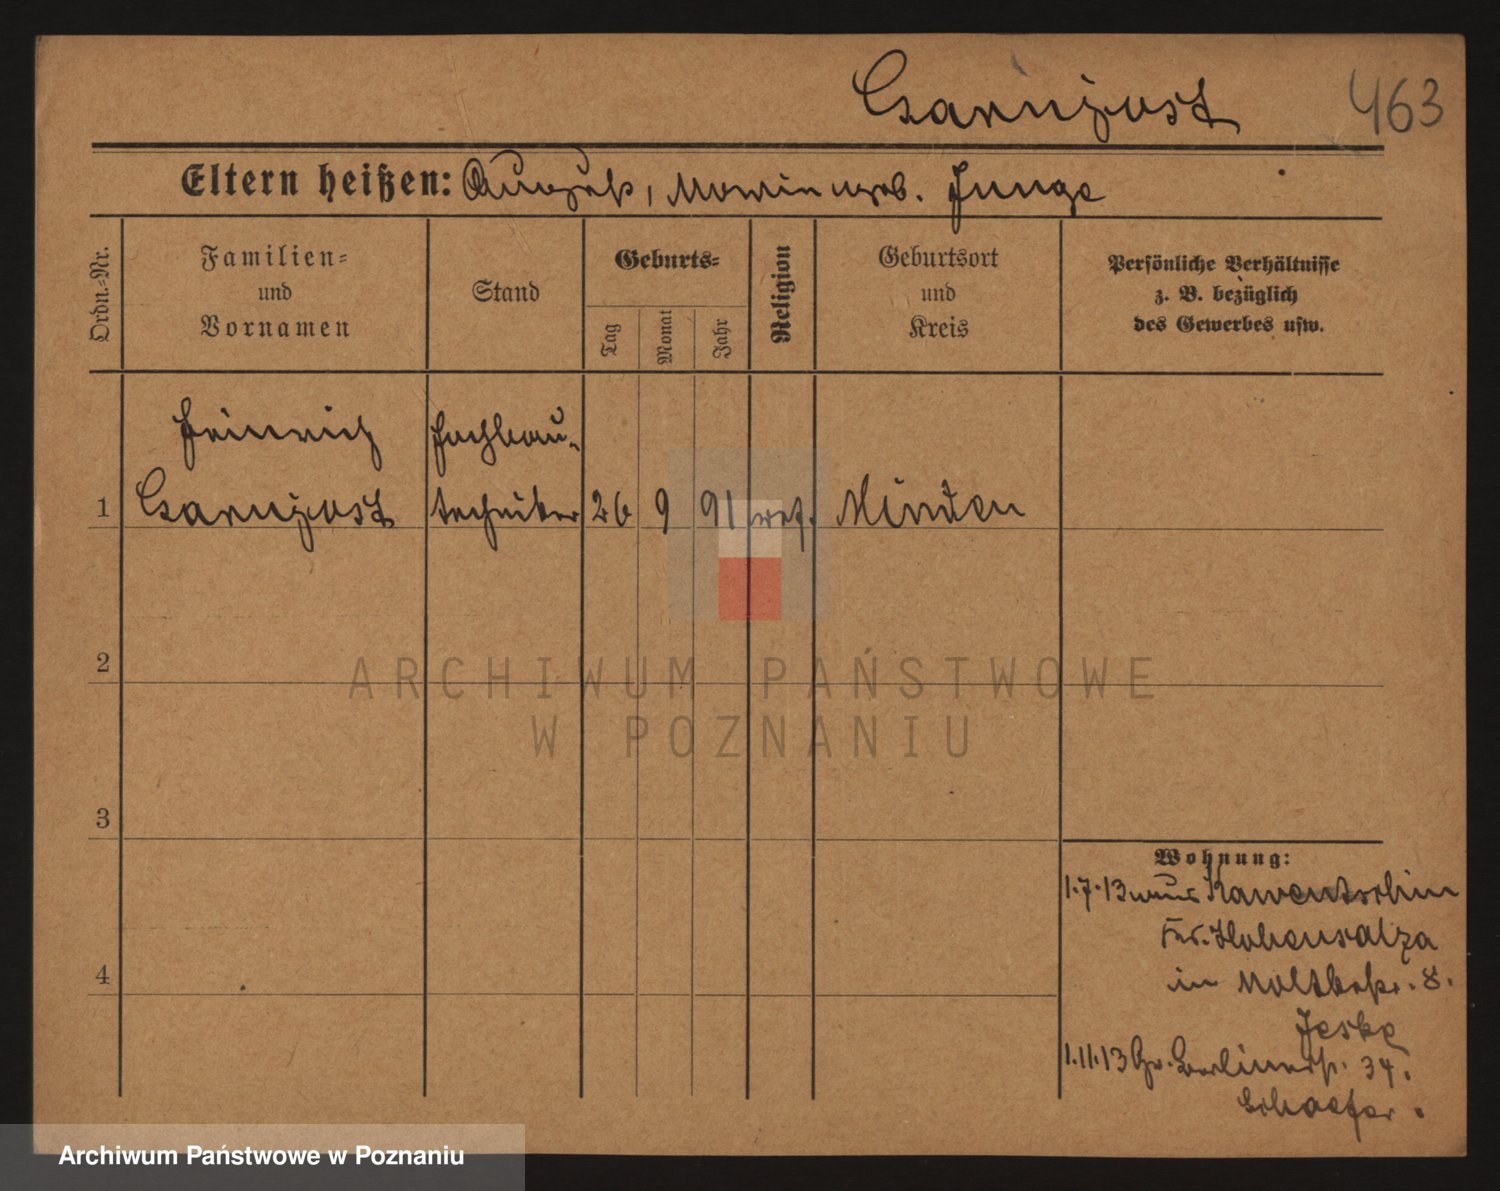 463
Eltern heißen: August, Marie geb. Junge
Ordn.-Nr.
Familien- und Vornamen
Stand
Geburts-
Tag
Monat
Jahr
Religion
Geburtsort und Kreis
Persönliche Verhältnisse
z. B. bezüglich
des Gewerbes usw.
Heinrich Hochbau-
1 techniker 26 9 91 ref. Minden
2
3
4
Wohnung:
1.7.13 aus Kawentschin
Kr. Hohensalza
in Moltkestr. 8.
Jeske
1.11.13 Gr. Berlinerstr. 34.
Schaefer.
ARCHIWUM PAŃSTWOWE
W POZNANIU
Archiwum Państwowe w Poznaniu